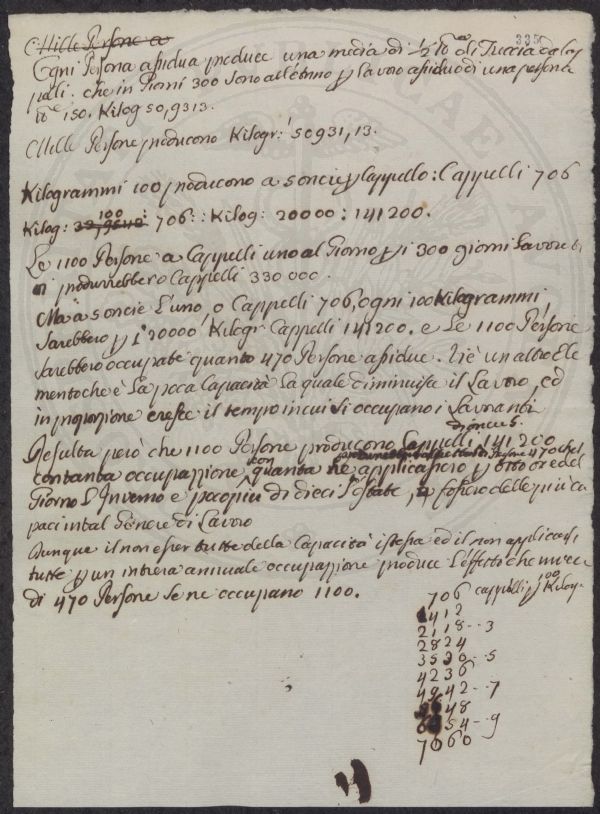 335
Mille Persone a
Ogni Persona assidua produce una media di ½ tb di Treccia da Cap
pelli. che in Giorni 300 sono all'anno p lavoro assiduo di una persona
150. Kilog 50,9313.
Mille Persone producono Kilogr: 50931,13.
Kilogrammi 100 producono a 5 oncie p Cappello: Cappelli 706
100
Kilog: 706:: Kilog: 20000: 141200.
Le 1100 Persone a Cappelli uno al Giorno p i 300 giorni Lavora
produrrebbero Cappelli 330000.
Ma a 5 oncie l'uno, o Cappelli 706, ogni 100 Kilogrammi,
Sarebbero p i 20000 Kilogr Cappelli 141200. e Le 1100 Persone
Sarebbero occupate quanto 470 Persone assidue. Vi è un altro Ele
mento che è La poca Capacità La quale diminuisce il Lavoro, ed
in proporzione cresce il tempo in cui si occupano i Lavoranti
d'oncie 5.
Resulta però che 1100 Persone producono Cappelli 141200
con tanta occupazione, quanta applicassero p otto ore del
Giorno L'Inverno e poco piu di dieci L'Estate, se fossero delle piu ca
paci in tal Genere di Lavoro
Dunque il non esser tutte della Capacità istessa ed il non applicarsi
tutte p un intiera annuale occupazione produce L'effetto che invece
di 470 Persone se ne occupano 1100.
706 cappelli p 100 Kilog.
1412
2118--3
2824
3530--5
4236
4942--7
5648
6354--9
7060